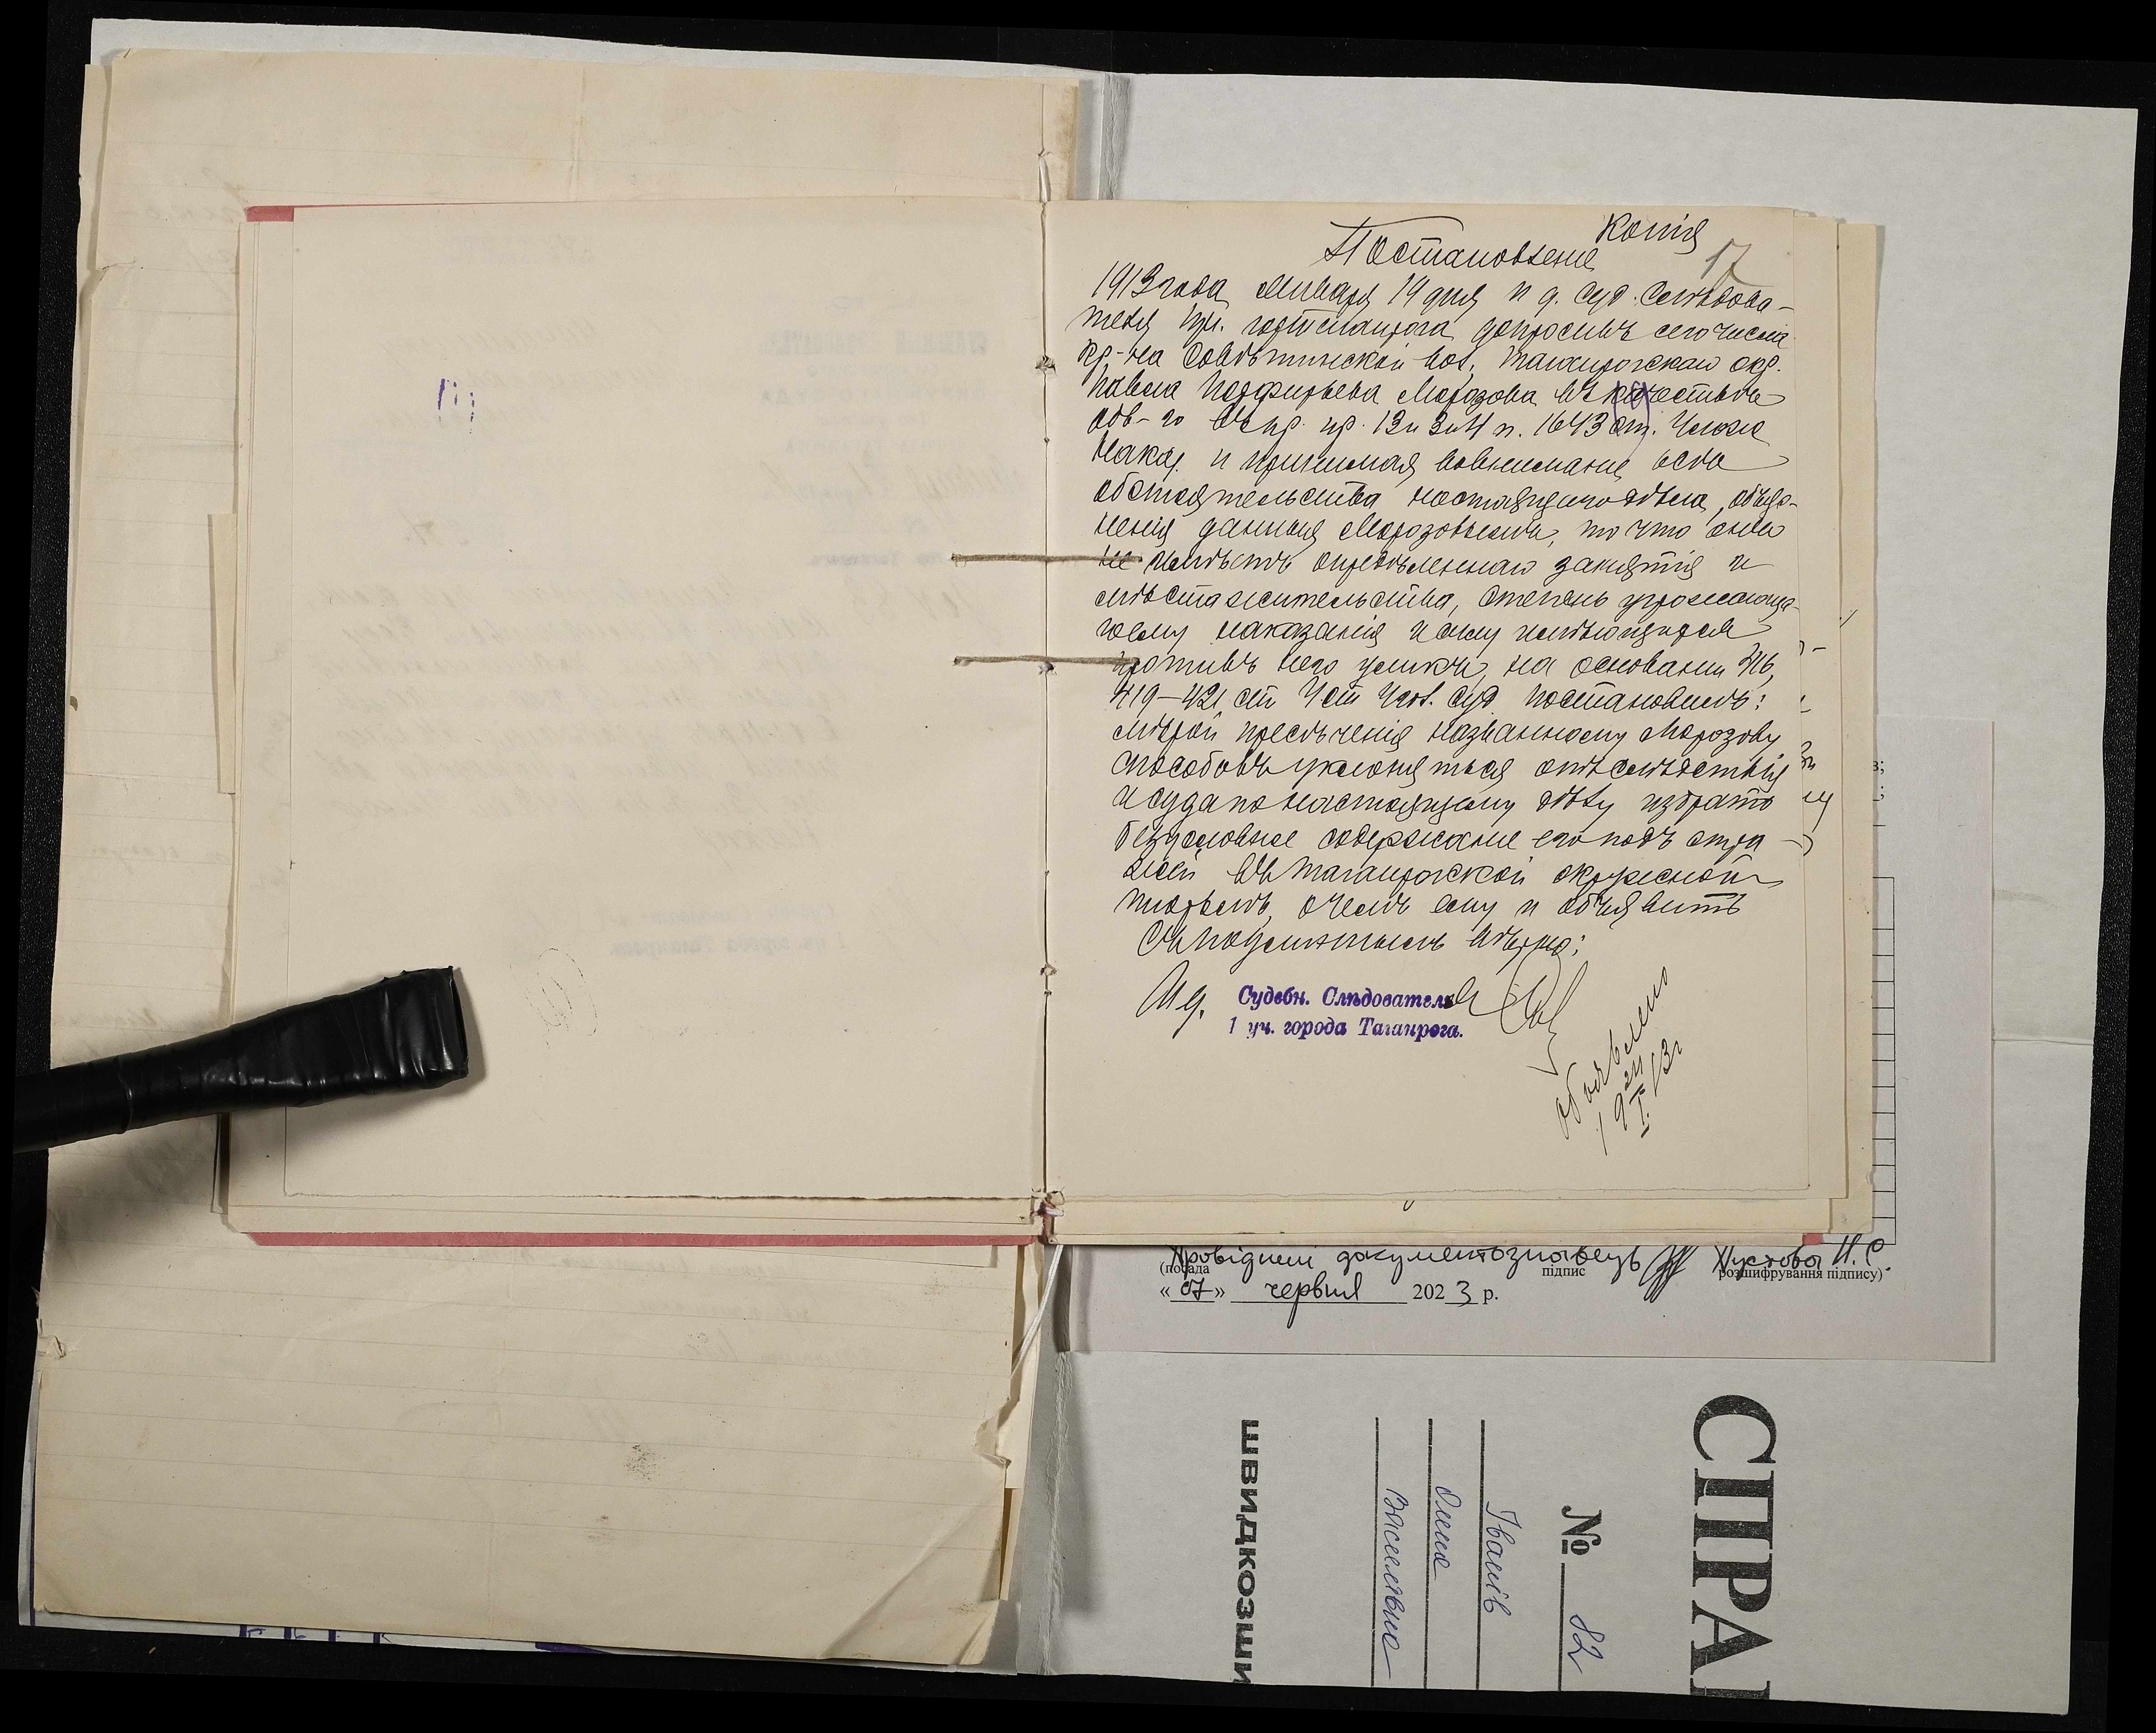 Копія
17
Постановленіе
1913 года Января 19 дня И д. Суд. Слѣдова-
теля гор. Таганрога, допросивъ сего числа
кр-на Совѣтинской вол. Таганрогскаго окр.
Павла Порфирьева Морозова въ качествѣ
обв-го въ пр. пр. 13 и 3 и 4 п. 1643 ст. Улож.
Наказ. и принимая во вниманіе всѣ
обстоятельства настоящаго дѣла, объяс-
ненія данныя Морозовымъ, то что онъ
не имѣетъ опредѣленнаго занятія и
мѣста жительства, степень угрожающа-
го ему наказанія и силу имѣющихся
противъ него уликъ, на основаніи 416,
419–421 ст Уст Угол. Суд. постановилъ:
мѣрой пресѣченія названному Морозову
способовъ уклоняться отъ слѣдствія
и суда по настоящему дѣлу избрать
безусловное содержаніе его подъ стра
жей въ Таганрогской окружной
тюрьмѣ, о чемъ ему и объявить
Съ подлиннымъ вѣрно:
И д. Судебн. Слѣдователь
1 уч. города Таганрога.
объявлено
19 24/I 13 г
Провідний документознавець Пустова Н.С.
(посада
підпис
розшифрування підпису)
« 07 » червня 2023 р.
СПРАВ
№ 82
Іванів
Олена
Василівна
швидкозши